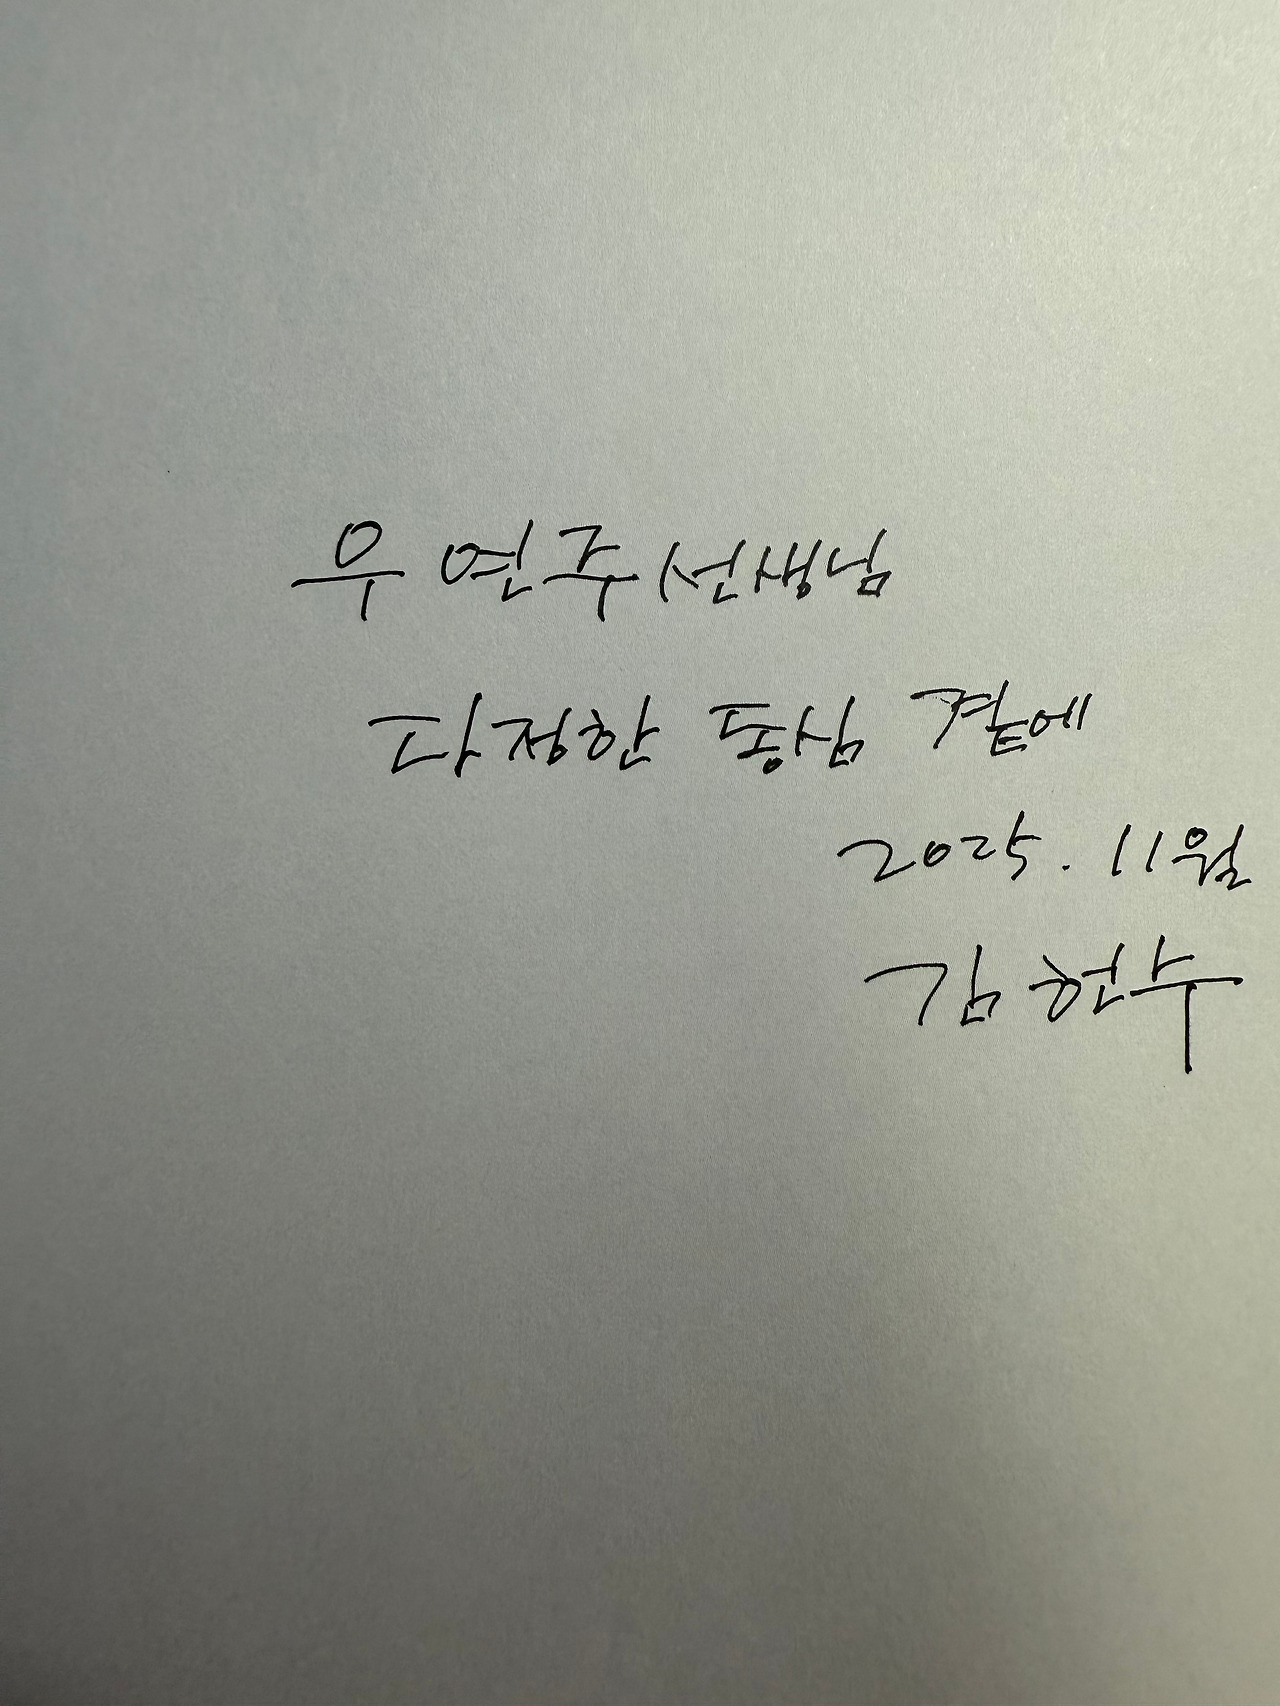 우연주 선생님
다정한 동심 곁에
2025. 11월
김헌수